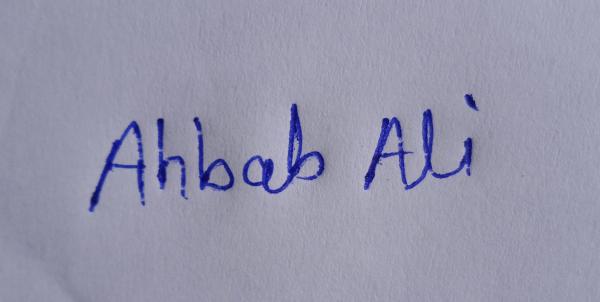 Ahbab Ali